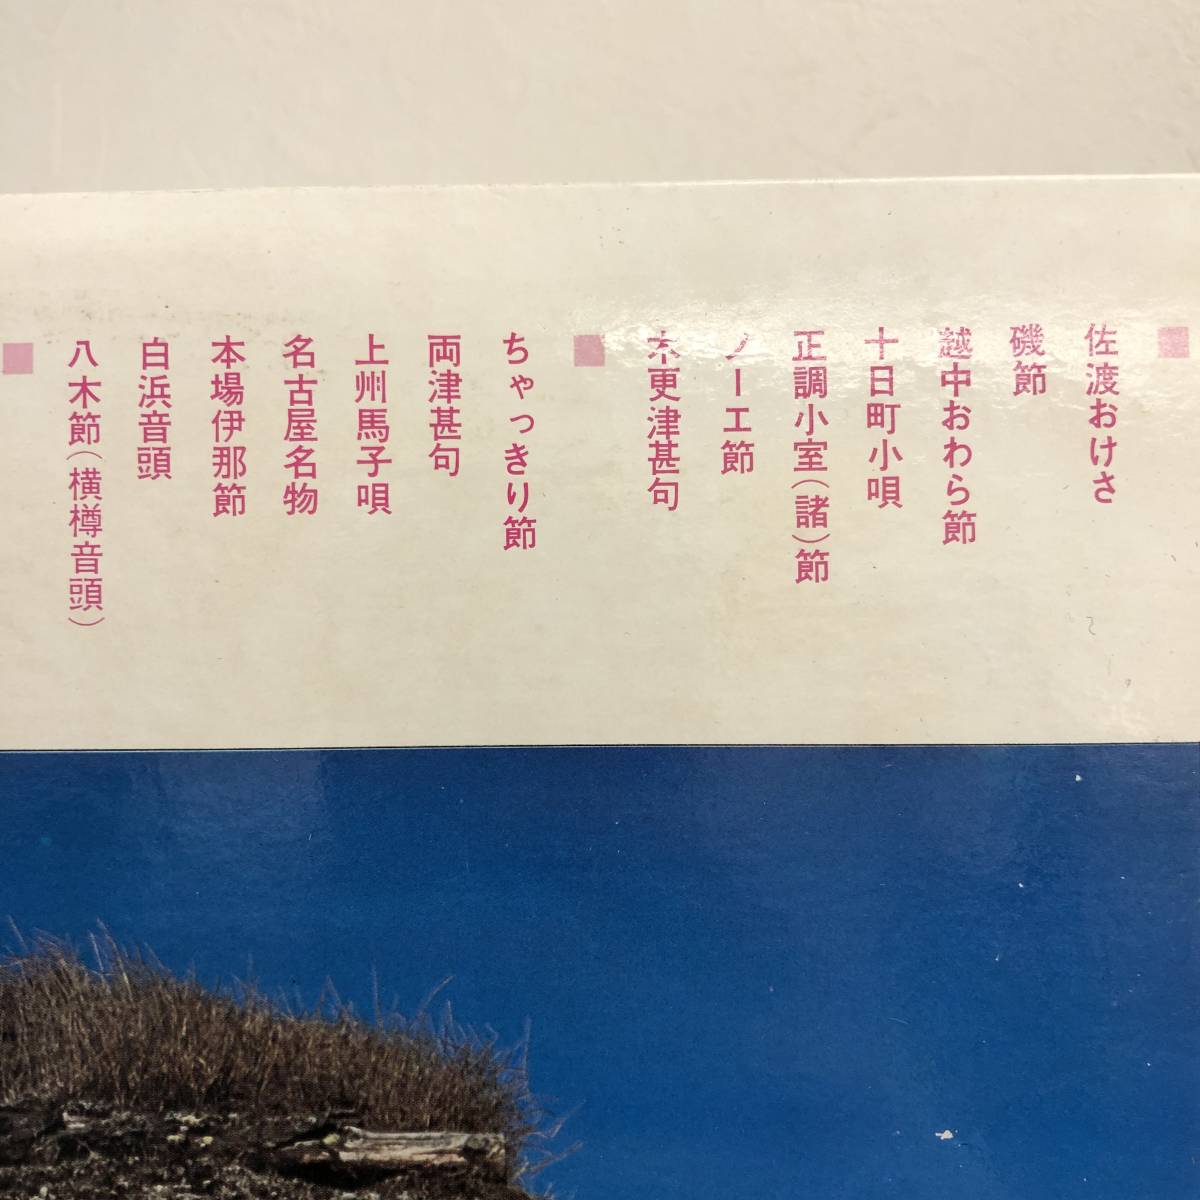 ■
佐渡おけさ
磯節
越中おわら節
十日町小唄
正調小室(諸)節
ノーエ節
木更津甚句
■
ちゃっきり節
両津甚句
上州馬子唄
名古屋名物
本場伊那節
白浜音頭
八木節(横樽音頭)
■